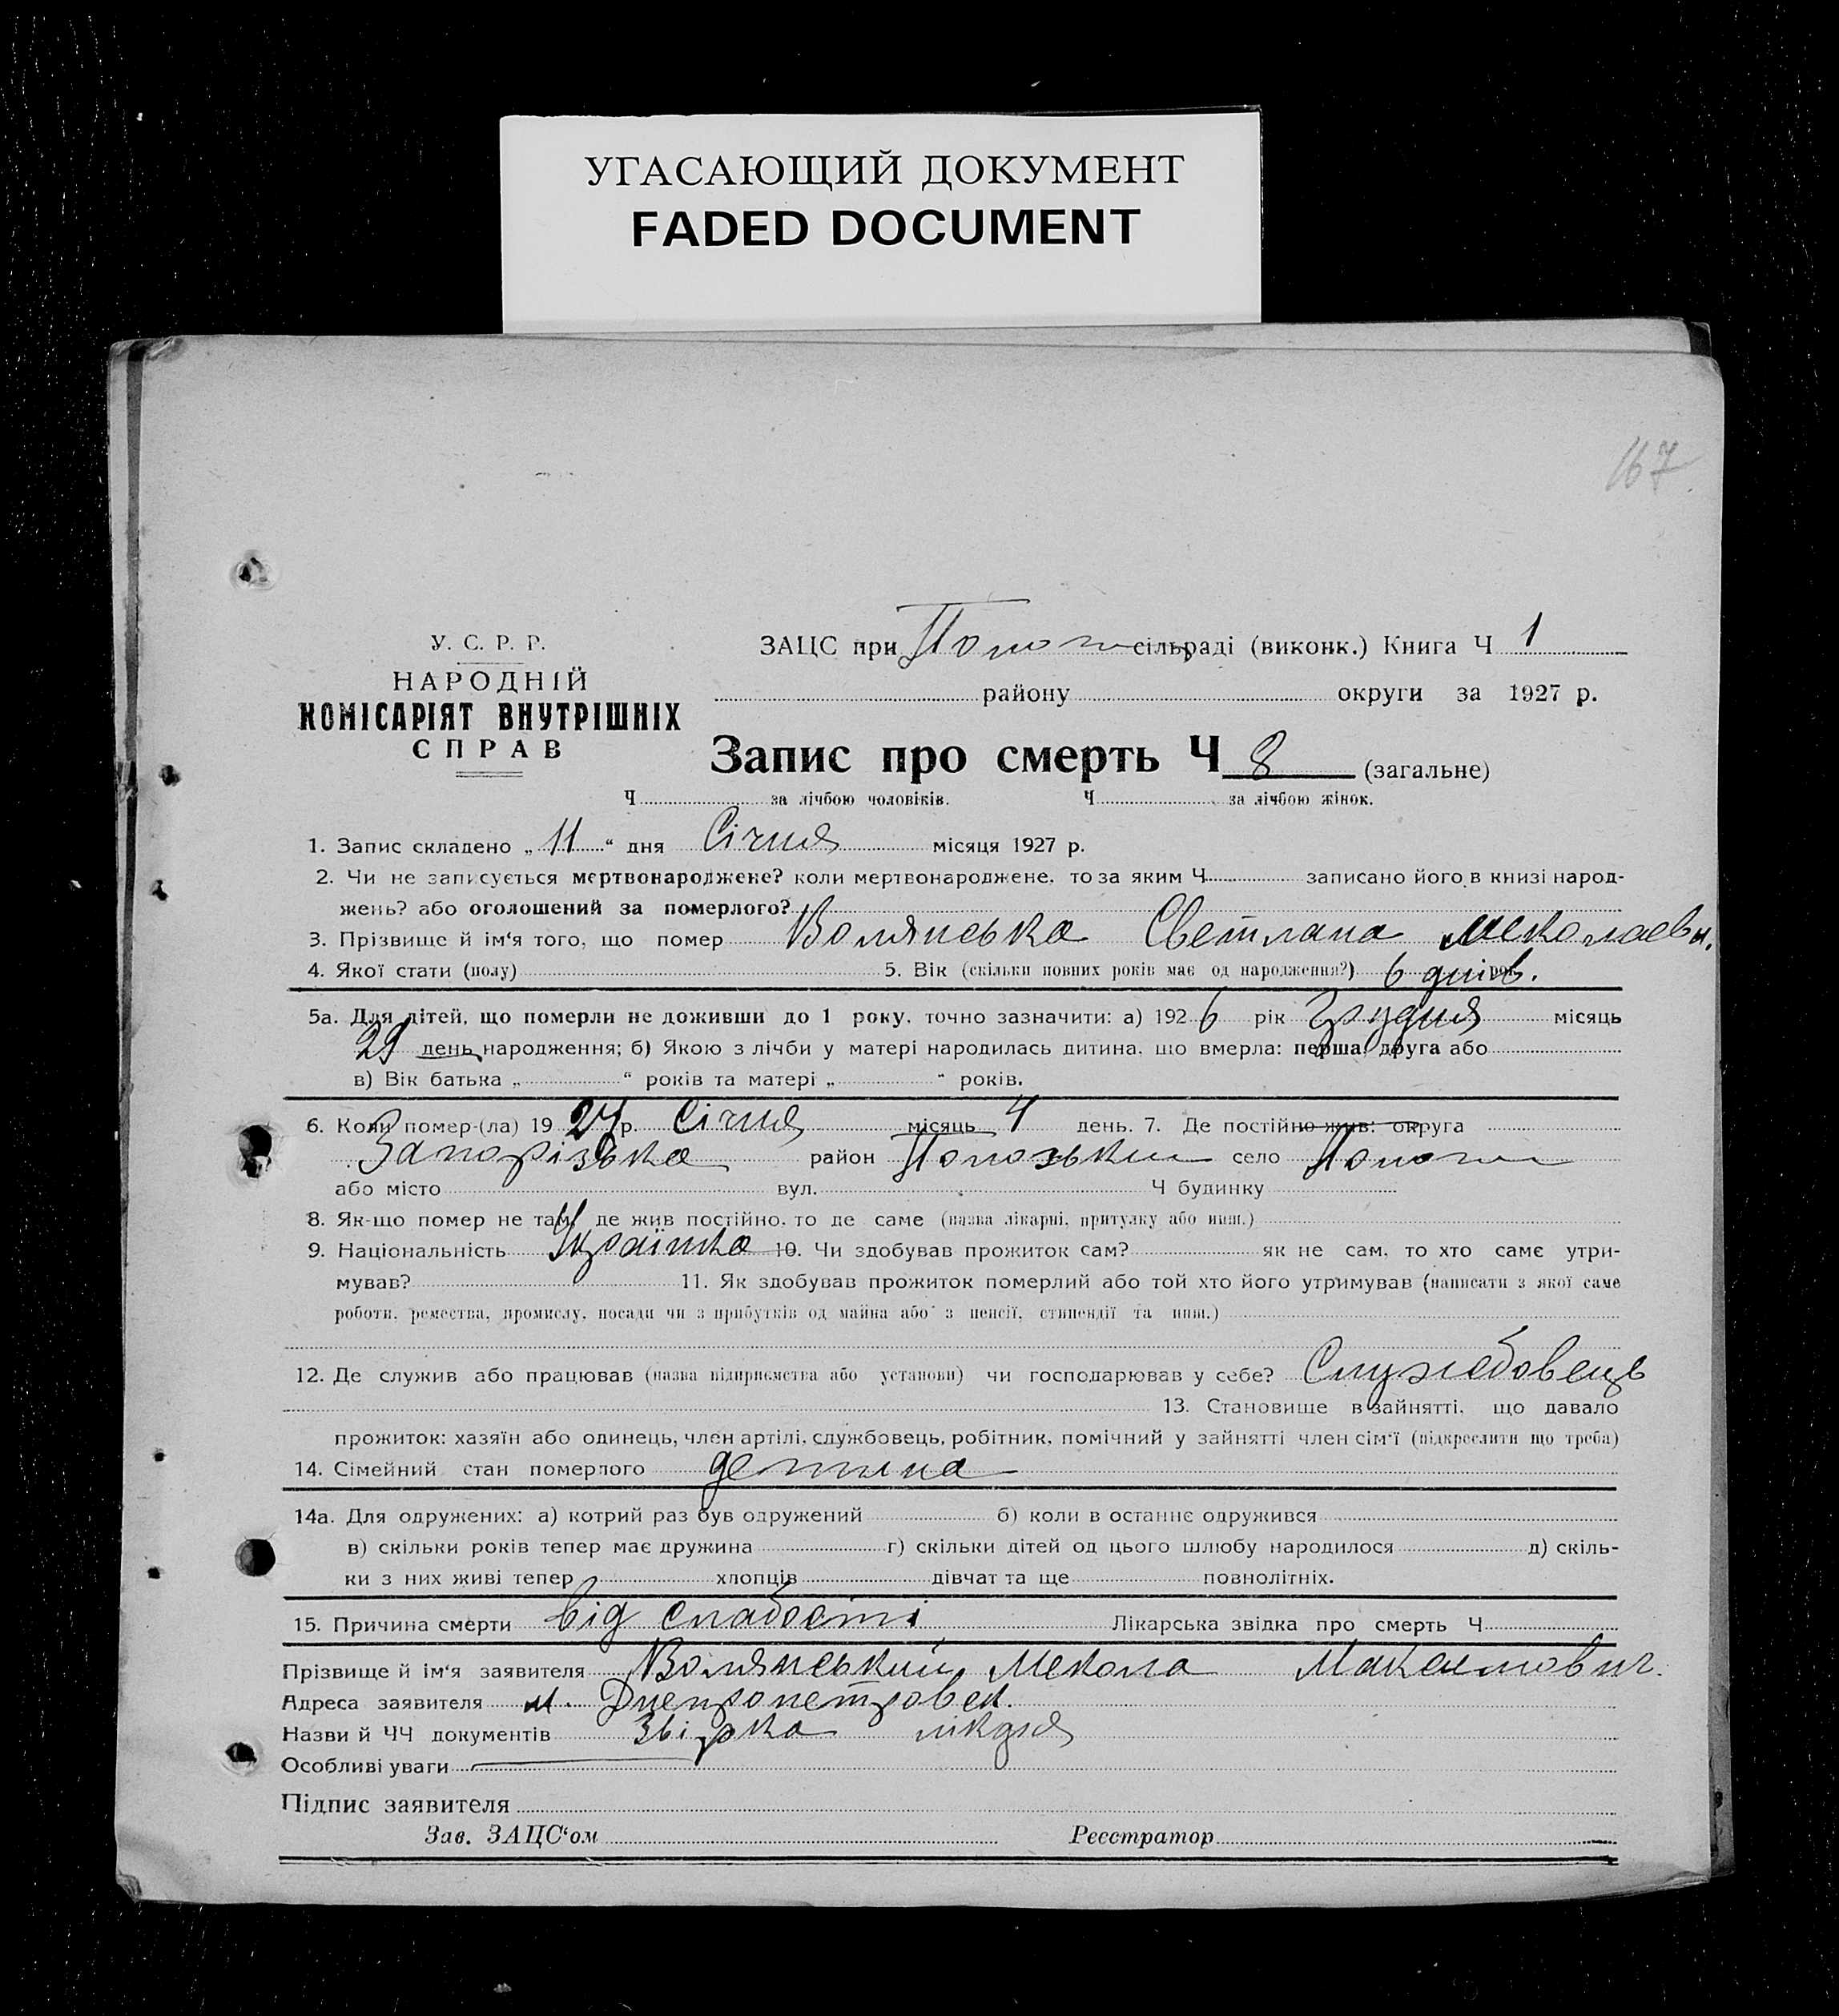 УГАСАЮЩИЙ ДОКУМЕНТ
FADED DOCUMENT
167
У. С. Р. Р.
НАРОДНІЙ
КОМІСАРІЯТ ВНУТРІШНІХ
СПРАВ
ЗАЦС при Пологи сільраді (виконк.) Книга Ч 1
району округи за 1927 р.
Запис про смерть Ч 8 (загальне)
Ч за лічбою чоловіків. Ч за лічбою жінок.
1. Запис складено „ 11 “ дня Січня місяця 1927 р.
2. Чи не записується мертвонароджене? коли мертвонароджене, то за яким Ч записано його в книзі народ-
жень? або оголошений за померлого?
3. Прізвище й ім‘я того, що помер Волянська Светлана Меколаевн.
4. Якої стати (полу) 5. Вік (скільки повних років має од народження?) 6 днів.
5а. Для дітей, що померли не доживши до 1 року, точно зазначити: а) 1926 рік Грудня місяць
29 день народження; б) Якою з лічби у матері народилась дитина, що вмерла: перша, друга або
в) Вік батька „ “ років та матері „ “ років.
6. Коли помер-(ла) 1927 р. Січня місяць 4 день. 7. Де постійно жив: округа
Запорізька район Полозьким село Пологи
або місто вул. Ч будинку
8. Як-що помер не там, де жив постійно, то де саме (назва лікарні, притулку або инш.)
9. Національність Українка 10. Чи здобував прожиток сам? як не сам, то хто саме утри-
мував? 11. Як здобував прожиток померлий або той хто його утримував (написати з якої саме
роботи, ремества, промислу, посади чи з прибутків од майна або з пенсії, стипендії та инш.)
12. Де служив або працював (назва підприємства або установи) чи господарював у себе? Служебовець
13. Становище в зайнятті, що давало
прожиток: хазяїн або одинець, член артілі, службовець, робітник, помічний у зайнятті член сім‘ї (підкреслити що треба)
14. Сімейний стан померлого детина
14а. Для одружених: а) котрий раз був одружений б) коли в останнє одружився
в) скільки років тепер має дружина г) скільки дітей од цього шлюбу народилося д) скіль-
ки з них живі тепер хлопців дівчат та ще повнолітніх.
15. Причина смерти Від слабости Лікарська звідка про смерть Ч
Прізвище й ім‘я заявителя Волянський Мекола
Адреса заявителя м. Днепропетровск.
Назви й ЧЧ документів
Особливі уваги
Підпис заявителя
Зав. ЗАЦС‘ом Реєстратор